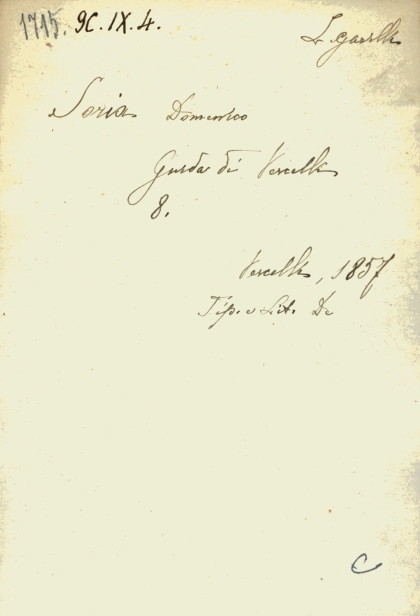 1715. 9C.IX.4.
Soria Domenico
Guida di Vercelli
8.
Vercelli, 1857
Tip. e Lit. De
C